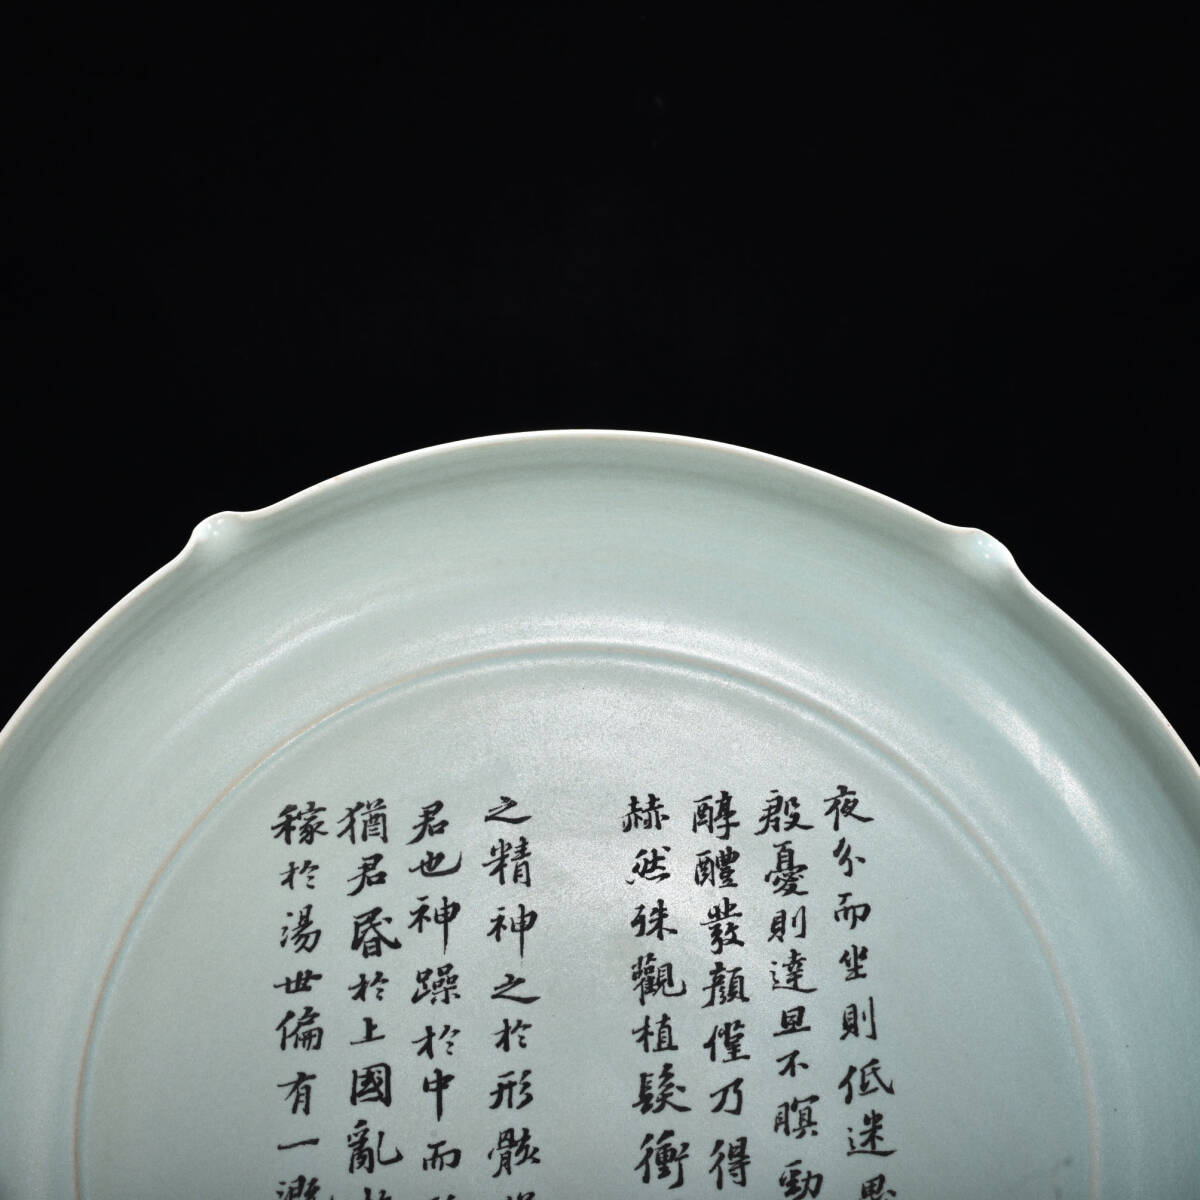 夜分而坐則低迷思
殷憂則達旦不瞑勁
醇醴發顏僅乃得
赫然殊觀植髮衝
之精神之於形骸
君也神躁於中而
猶君昏於上國亂於
稼於湯世偏有一溉